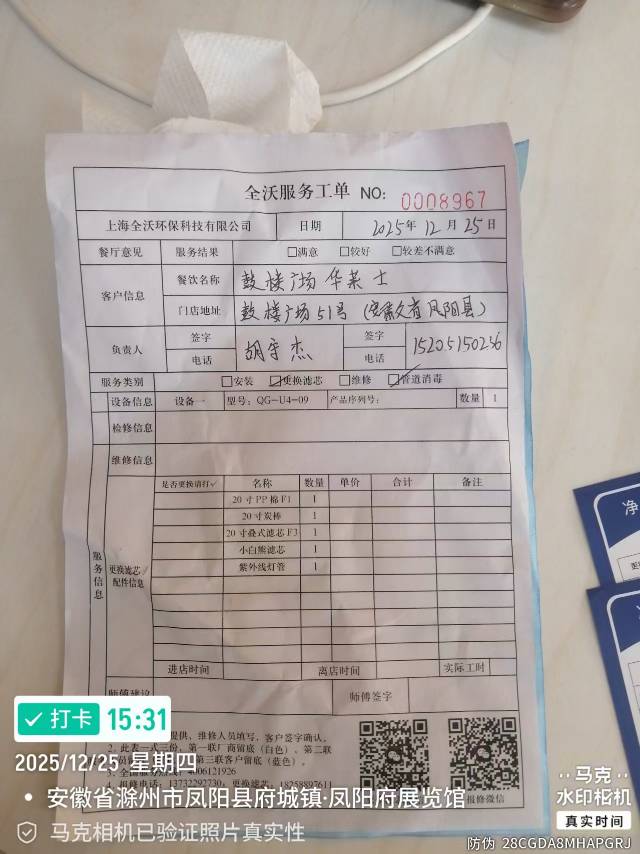 全沃服务工单 NO: 0008967
上海全沃环保科技有限公司 日期 2025年 12 月 25 日
餐厅意见 服务结果 □满意 □较好 □较差不满意
客户信息 餐饮名称 鼓楼广场 华莱士
门店地址 鼓楼广场51号 (安徽省凤阳县)
负责人 签字 电话 胡宇杰 签字 电话 15205150236
服务类别 □安装 ☑更换滤芯 □维修 ☑管道消毒
设备信息 设备一 型号: QG-U4-09 产品序列号: 数量 1
检修信息
维修信息
服务信息
更换滤芯/配件信息
是否更换请打✓ 名称 数量 单价 合计 备注
20寸PP棉F1 1
20寸炭棒 1
20寸叠式滤芯F3 1
小白熊滤芯 1
紫外线灯管 1
进店时间 离店时间 实际工时
师傅建议 师傅签字
提供, 维修人员填写, 客户签字确认。
2. 此表一式三份, 第一联厂商留底(白色)。第二联
第三联客户留底(蓝色)。
4006121926
4. 报修电话: 13732292730; 更换滤芯: 18258897611
报修微信
净
打卡 15:31
2025/12/25 星期四
安徽省滁州市凤阳县府城镇·凤阳府展览馆
马克相机已验证照片真实性
马克
水印相机
真实时间
防伪 28CGDA8MHAPGRJ